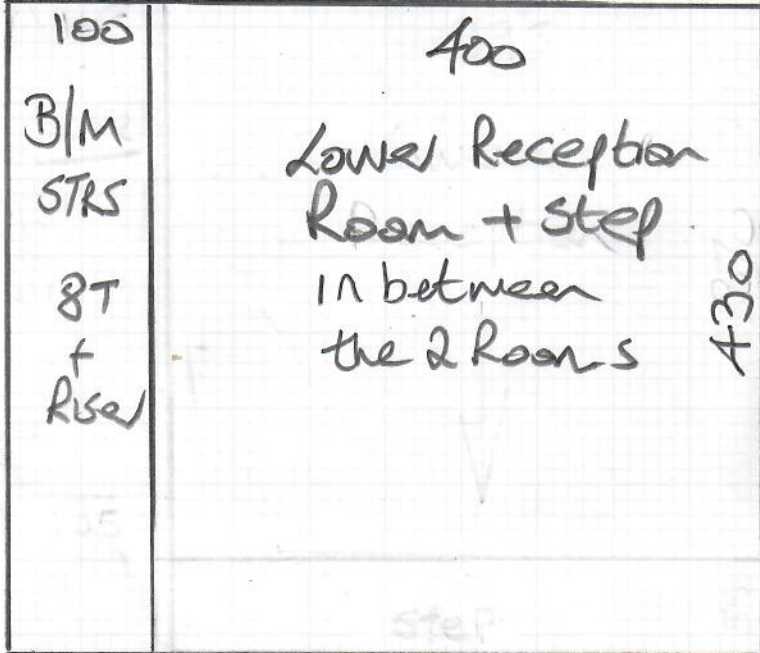 100
B/M
STRS
8T
+
Riser
400
Lower Reception
Room + Step
in between
the 2 Rooms
430
step